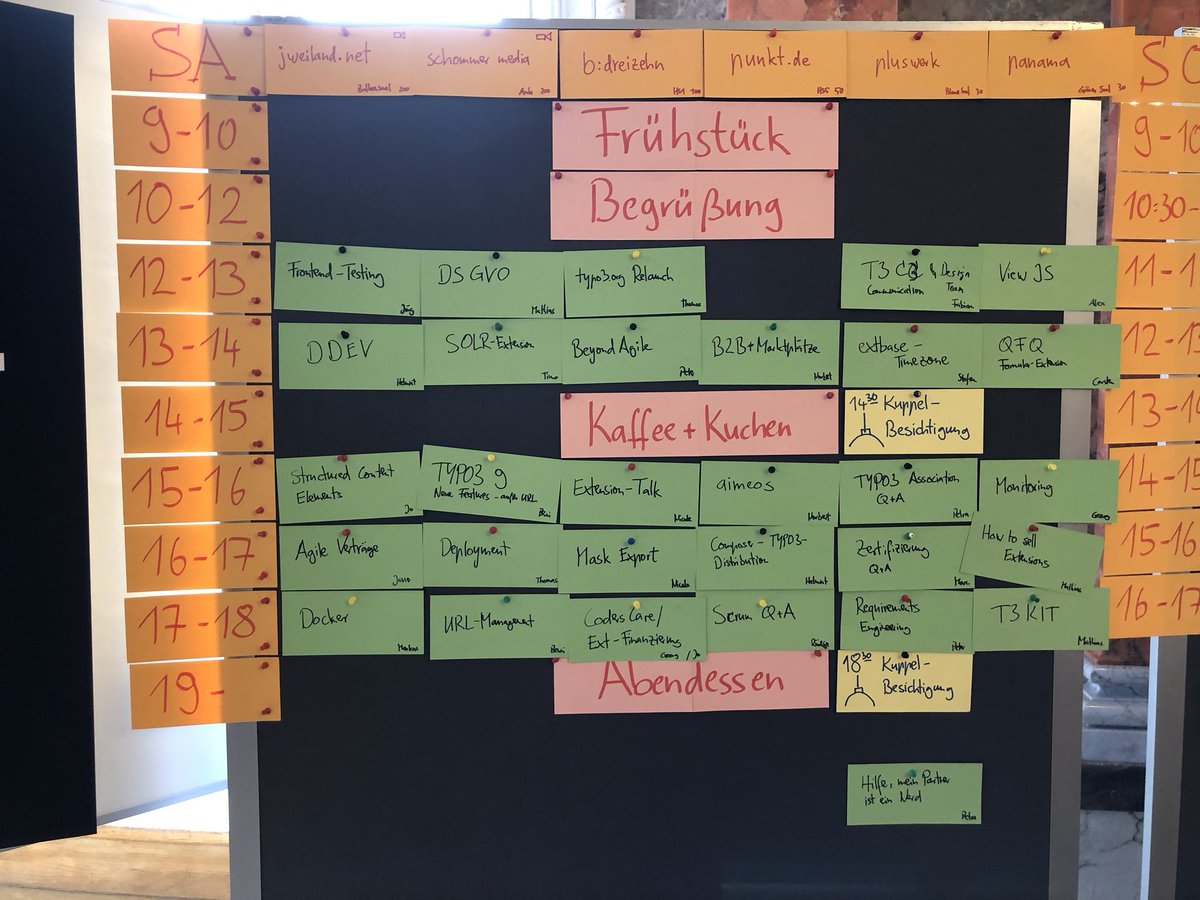 SA
jweiland.net
schommer media
b:dreizehn
punkt.de
pluswerk
panama
Ballsaal 200
Aula 200
HS1 100
HS5 50
Blauer Saal 30
Grüner Saal 30
9-10
Frühstück
9-10
10-12
Begrüßung
10:30-
12-13
Frontend-Testing
Jörg
DSGVO
Mathias
typo3.org Relauch
Thomas
T3 CD & Design
Communication Team
Fabian
View JS
Alex
11-1
13-14
DDEV
Helmut
SOLR-Extension
Timo
Beyond Agile
Petra
B2B+Marktplätze
Norbert
extbase-
Timezone
Stefan
QFQ
Formular-Extension
Carsten
12-13
14-15
Kaffee + Kuchen
14³⁰ Kuppel-
Besichtigung
13-1
15-16
Structured Content
Elements
Jo
TYPO3 9
Neue Features - außer URL
Beni
Extension-Talk
Nicole
aimeos
Norbert
TYPO3 Association
Q+A
Petra
Monitoring
Georg
14-15
16-17
Agile Verträge
Deployment
Thomas
Mask Export
Nicole
Compose-TYPO3-
Distribution
Helmut
Zertifizierung
Q+A
Marc
How to sell
Extensions
Mathias
15-16
17-18
Docker
Markus
URL-Management
Beni
Coders Care/
Ext-Finanzierung
Georg / Jo
Scrum Q+A
Requirements
Engineering
Petra
T3 KIT
Mathias
16-17
19-
Abendessen
18³⁰ Kuppel-
Besichtigung
Hilfe, mein Partner
ist ein Nerd
Petra